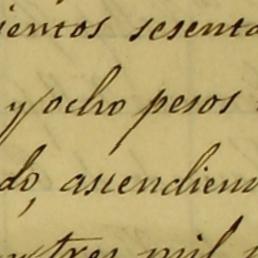 ientos sesenta
y ocho pesos
do, ascendien
y tres mil